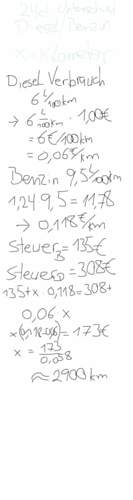 Diesel Verbrauch
6 l/100km
→ 6 l/100km · 1,00€
= 6€/100km
= 0,06€/km
Benzin 9,5 l/100km
1,24 9,5 = 11,78
→ 0,118€/km
Steuer_B = 135€
Steuer_D = 308€
135+x 0,118=308+
0,06 x
x(0,118-0,06) = 173€
x = 173/0,058
≈ 2900km